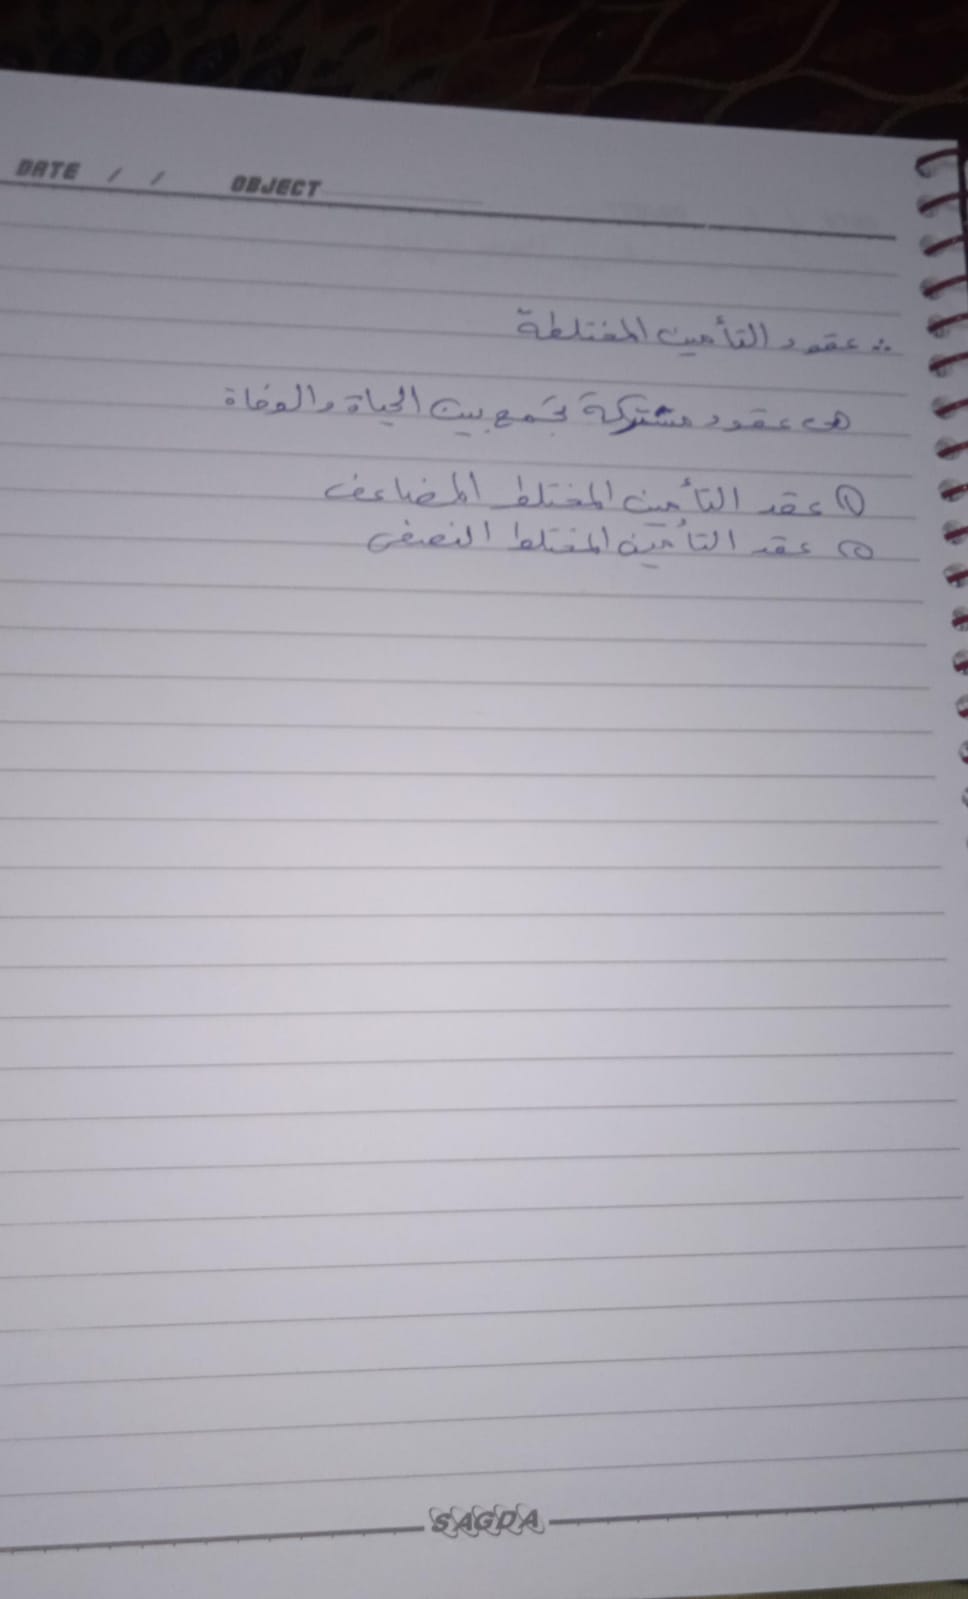 DATE / / OBJECT
∴ عقود التأمين المختلطة
هى عقود مشتركة تجمع بين الحياة والوفاة
① عقد التأمين المختلط المضاعف
② عقد التأمين المختلط النصفى
SAGDA